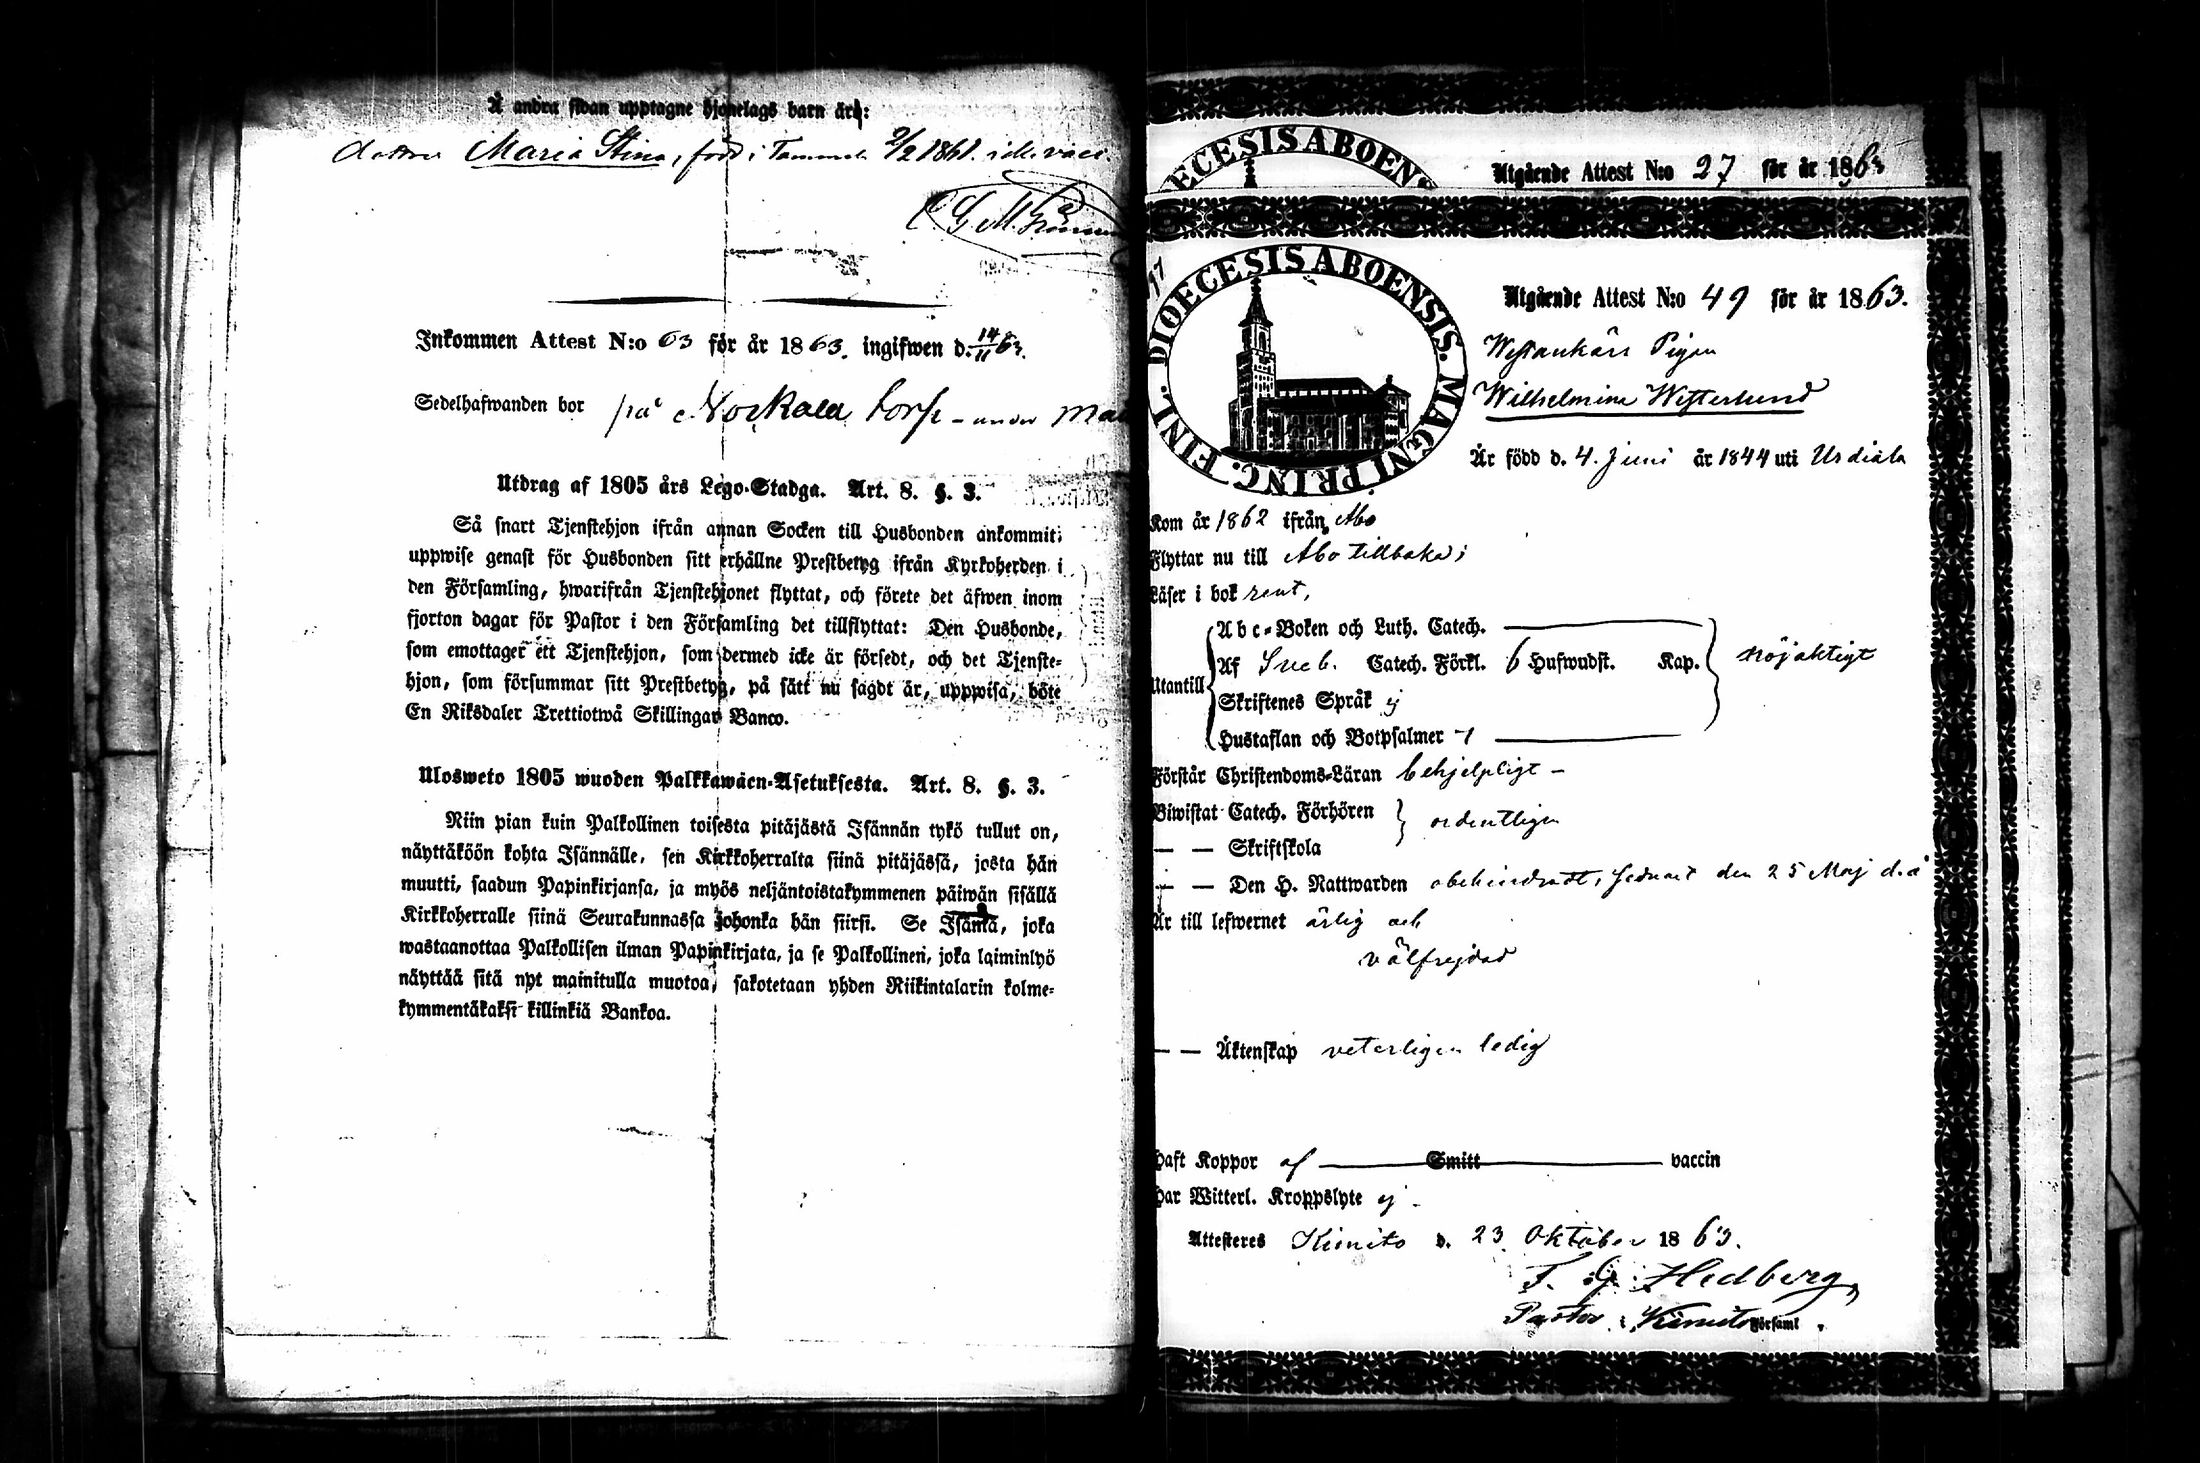 Å andra sidan upptagne hjonelags barn äro:
dottren Maria Stina, född i Tammela 2/2 1861. icke vacc.
Inkommen Attest N:o 63 för år 1863. ingifwen d. 14/11 63.
Sedelhafwanden bor på Norkala torp - under
Utdrag af 1805 års Lego-Stadga. Art. 8. §. 3.
Så snart Tjenstehjon ifrån annan Socken till Husbonden ankommit;
uppwise genast för Husbonden sitt erhållne Prestbetyg ifrån Kyrkoherden i
den Församling, hwarifrån Tjenstehjonet flyttat, och förete det äfwen inom
fjorton dagar för Pastor i den Församling det tillflyttat: Den Husbonde,
som emottager ett Tjenstehjon, som dermed icke är försedt, och det Tjenste-
hjon, som försummar sitt Prestbetyg, på sätt nu sagdt är, uppwisa, böte
En Riksdaler Trettiotwå Skillingar Banco.
Ulosweto 1805 wuoden Palkkawäen-Asetuksesta. Art. 8. §. 3.
Niin pian kuin Palkollinen toisesta pitäjästä Isännän tykö tullut on,
näyttäköön kohta Isännälle, sen Kirkkoherralta siinä pitäjässä, josta hän
muutti, saadun Papinkirjansa, ja myös neljäntoistakymmenen päiwän sisällä
Kirkkoherralle siinä Seurakunnassa johonka hän siirsi. Se Isäntä, joka
wastaanottaa Palkollisen ilman Papinkirjata, ja se Palkollinen, joka laiminlyö
näyttää sitä nyt mainitulla muotoa, sakotetaan yhden Riikintalarin kolme-
kymmentäkaksi killinkiä Bankoa.
ECESIS ABOENS
Utgående Attest N:o 27 för år 1863
DIOECESIS ABOENSIS. MAGNI PRINC. FINL.
Utgående Attest N:o 49 för år 1863.
Westankärr Pigan
Wilhelmina Westerlund
Är född d. 4. Juni år 1844 uti Urdiala
Kom år 1862 ifrån Åbo
Flyttar nu till Åbo tillbaka;
Läser i bok rent,
Utantill
Abc-Boken och Luth. Catech.
Af Sveb. Catech. Förkl. 6 Hufwudst. Kap. nöjaktigt
Skriftenes Språk ej
Hustaflan och Botpsalmer
Förstår Christendoms-Läran behjelpligt -
Biwistat Catech. Förhören ordentligen
— — Skriftskola
— — Den H. Nattwarden obehindradt, senast den 25 Maj d. å
Är till lefwernet ärlig och
välfrejdad
— — Äktenskap veterligen ledig
Haft Koppor af Smitt vaccin
Har Witterl. Kroppslyte ej -
Attesteres Kimito d. 23 Oktober 1863.
F. G. Hedberg
Pastor i Kimito Församl.